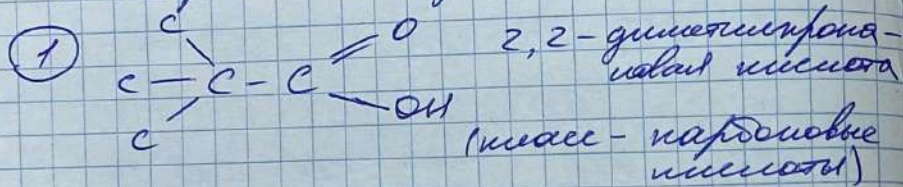 1
C
C – C – C
C
O
OH
2,2-диметилпропа-
новая кислота
(класс – карбоновые
кислоты)